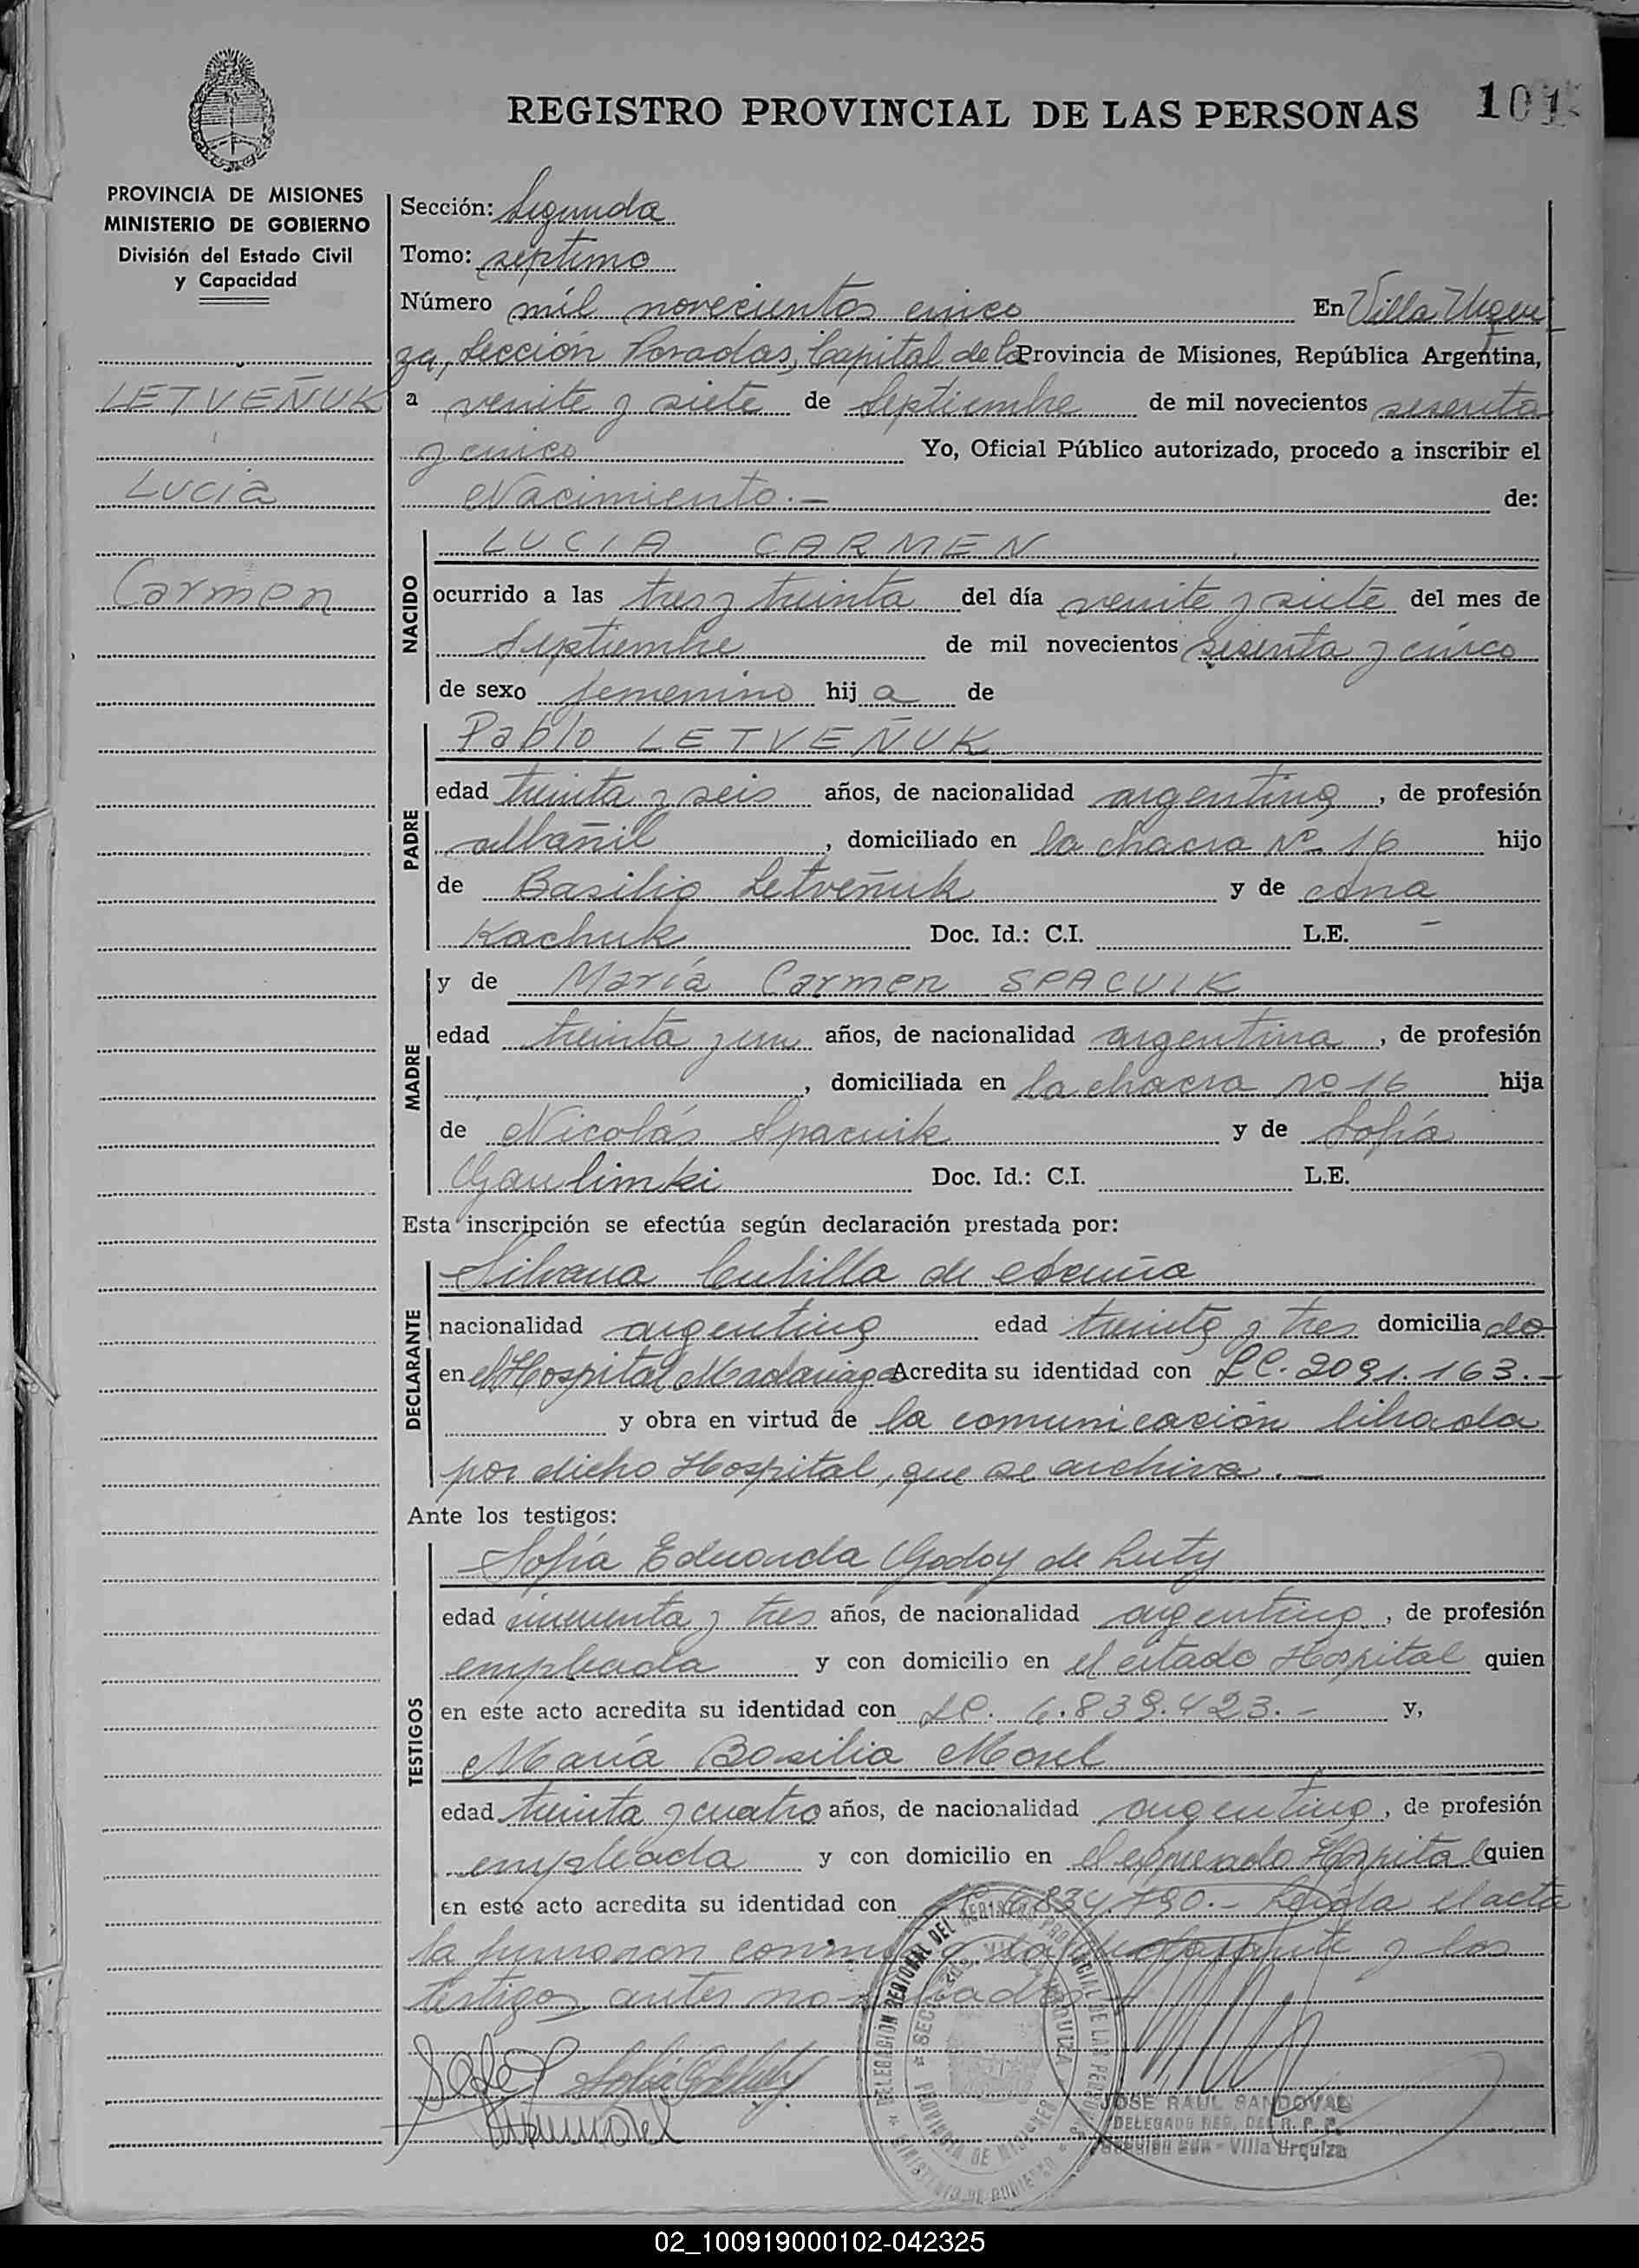 REGISTRO PROVINCIAL DE LAS PERSONAS 101
PROVINCIA DE MISIONES
MINISTERIO DE GOBIERNO
División del Estado Civil
y Capacidad
LETVEÑUK
Lucía
Carmen
Sección: Segunda
Tomo: séptimo
Número mil novecientos cinco En Villa Urqui
za, Sección Posadas, Capital de la Provincia de Misiones, República Argentina,
a veinte y siete de Septiembre de mil novecientos sesenta
y cinco Yo, Oficial Público autorizado, procedo a inscribir el
Nacimiento.- de:
NACIDO
LUCIA CARMEN
ocurrido a las tres y treinta del día veinte y siete del mes de
Septiembre de mil novecientos sesenta y cinco
de sexo femenino hij a de
PADRE
Pablo LETVEÑUK
edad treinta y seis años, de nacionalidad argentina, de profesión
albañil, domiciliado en la chacra Nº 16 hijo
de Basilio Letveñuk y de
Kachuk Doc. Id.: C.I. L.E. -
MADRE
y de María Carmen SPACUIK
edad treinta y un años, de nacionalidad argentina, de profesión
, domiciliada en la chacra nº 16 hija
de Nicolás Spacuik y de Sofía
Gaulimki Doc. Id.: C.I. L.E.
Esta inscripción se efectúa según declaración prestada por:
DECLARANTE
Silvana Cubilla de
nacionalidad argentina edad treinta y tres domicilia do
en el Hospital Madariaga Acredita su identidad con LC. 2091.163.-
y obra en virtud de la comunicación librada
por dicho Hospital, que se archiva.-
Ante los testigos:
TESTIGOS
Sofía Eduarda Godoy de Luty
edad cincuenta y tres años, de nacionalidad argentina, de profesión
empleada y con domicilio en el citado Hospital quien
en este acto acredita su identidad con LC. 6.839.423.- y,
María Basilia Morel
edad treinta y cuatro años, de nacionalidad argentina, de profesión
empleada y con domicilio en el expresado Hospital quien
en este acto acredita su identidad con 6834.790.- Leída el acta
la firmaron conmigo la declarante y los
testigos antes nombrados
DELEGACION REGIONAL DEL REGISTRO PROVINCIAL DE LAS PERSONAS
MINISTERIO DE GOBIERNO
PROVINCIA DE MISIONES
JOSE RAUL SANDOVAL
DELEGADO REG. DEL R. P. P.
Sección 2da - Villa Urquiza
02_100919000102-042325